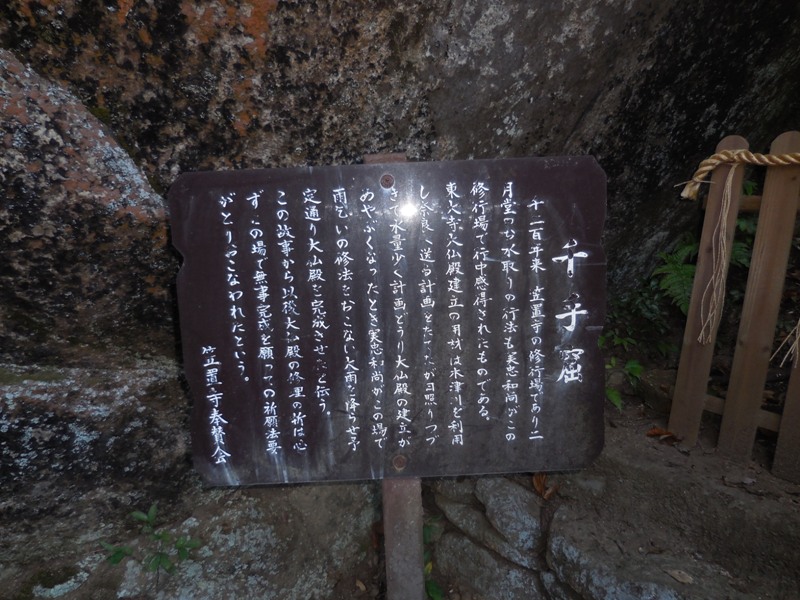 千手窟
千二百年来 笠置寺の修行場であり二
月堂のお水取りの行法も実忠和尚がこの
修行場で行中感得されたものである。
東大寺大仏殿建立の用材は木津川を利用
し奈良へ送る計画をたてたが日照りつづ
きで水量少く計画どうり大仏殿の建立が
あやぶくなったとき実忠和尚がこの場で
雨乞いの修法をおこない大雨を降らせ予
定通り大仏殿を完成させたと伝う。
この故事から以後大仏殿の修理の折は必
ずこの場で無事完成を願っての祈願法要
がとりおこなわれたという。
笠置寺奉賛会